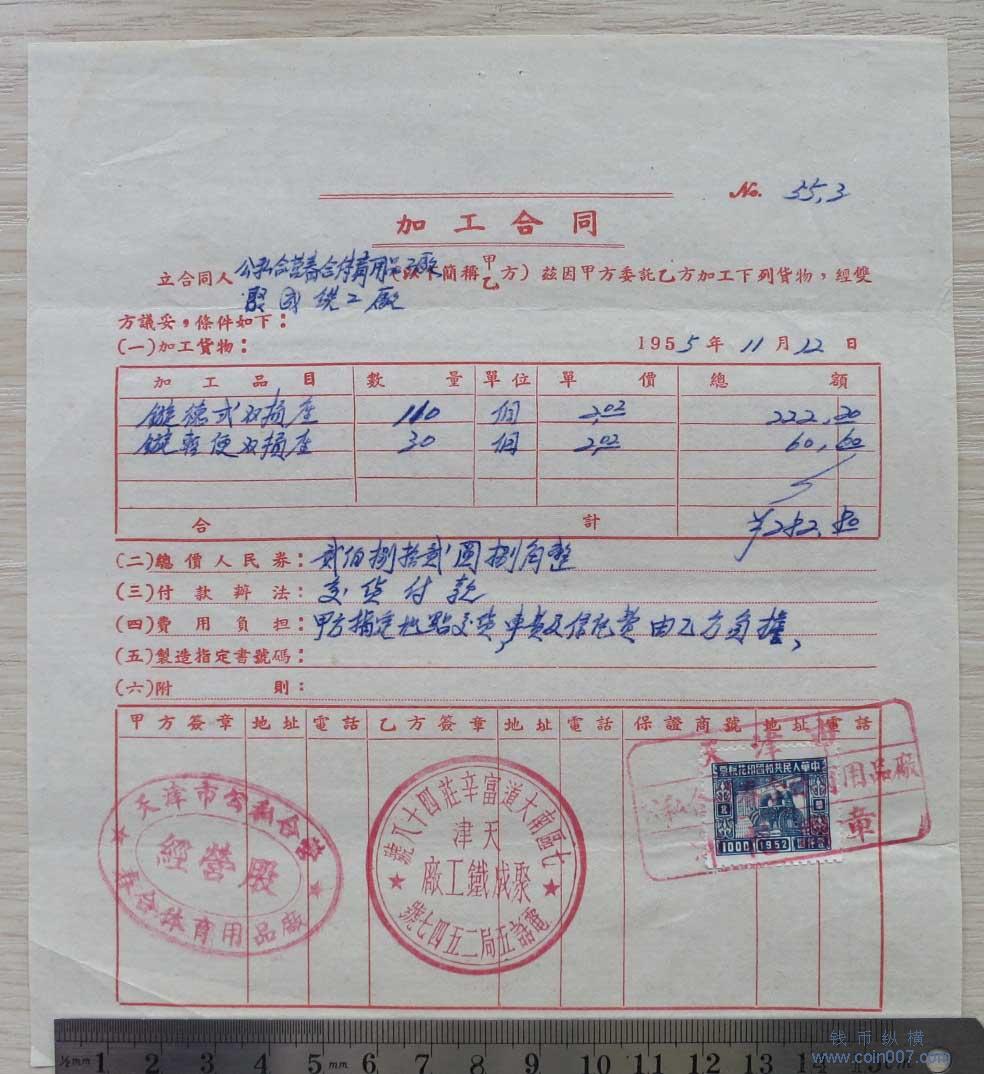 No. 55.3
加工合同
立合同人 公私合营春合体育用品厰 (以下簡稱 甲乙 方) 兹因甲方委託乙方加工下列貨物，經雙
聚成鉄工廠
方議妥，條件如下：
(一)加工貨物： 1955年11月12日
加工品目 數量 單位 單價 總額
鏇德式双損座 110 個 2.02 222.20
鏇輕便双損座 30 個 2.02 60.60
合計 ￥282.80
(二)總價人民券：貳佰捌拾貳圓捌角整
(三)付款辦法：交貨付款
(四)費用負担：甲方指定地點交貨，車費及信託費由乙方負擔、
(五)製造指定書號碼：
(六)附則：
甲方簽章 地址 電話 乙方簽章 地址 電話 保證商號 地址 電話
天津市公私合營
經營股
春合体育用品廠
七區南大道富辛莊四十八號
天津
聚成鐵工廠
電話五局二五四七號
天津
用品廠
章
中華人民共和國印花稅票
1000 1952
½mm 1 2 3 4 5mm 6 7 8 9 10 11 12 13 14 15cm
钱币纵横
www.coin007.com